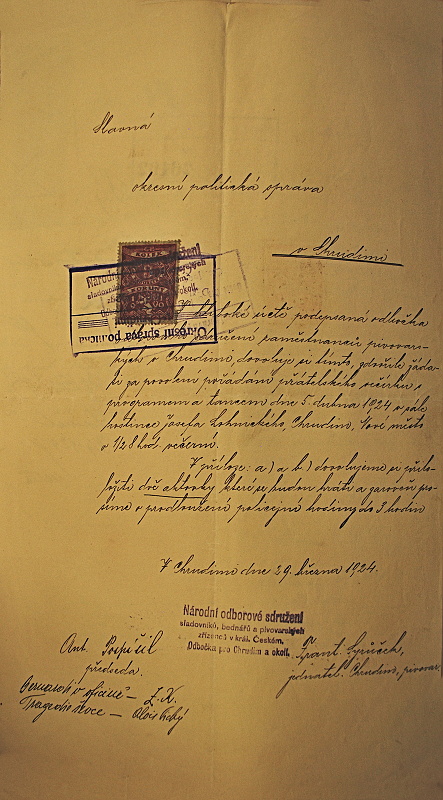 Slavná
okresní politická správa
v Chrudimi
KOLEK
Národní sdružení
sladovníků,
okol.
Okresní správa politická
V hluboké úctě podepsaná odbočka
sdružení zaměstnanců pivovar-
ských v Chrudimi, dovoluje si tímto, zdvořile žáda-
ti za povolení pořádání přátelského večírku s
programem a tancem dne 5. dubna 1924 v sále
hostince Josefa Chrudim, Nové město
o 1/2 8 hod. večerní.
V příloze: a) a b) dovolujeme si přilo-
žiti dvě aktovky, které se budou hráti a zároveň pro-
síme o prodloužení policejní hodiny do 3 hodin
V Chrudimi dne 29. března 1924.
Národní odborové sdružení
sladovníků, bednářů a pivovarských
zřízenců v král. Českém.
Odbočka pro Chrudim a okolí.
Ant. Pospíšil
předseda.
Frant.
jednatel. Chrudim, pivovar.
– F. K.
Tragedie – Alois Tichý